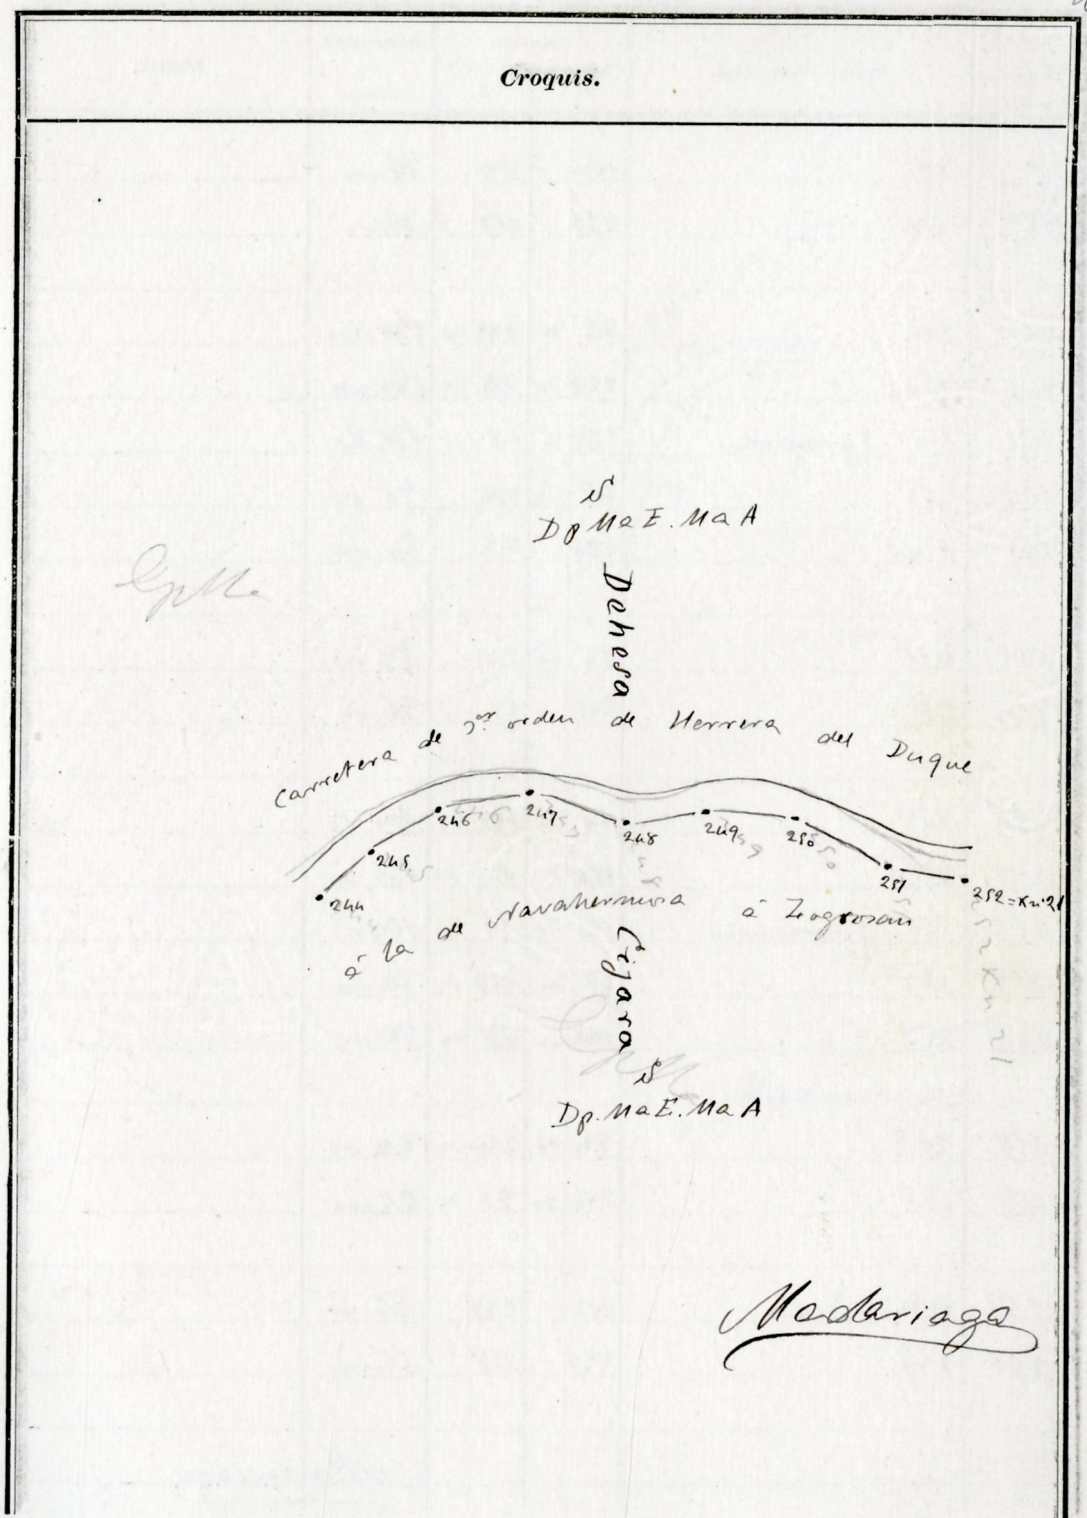 Croquis.
Dp Ma E. Ma A
Dehesa
Carretera de 3er orden de Herrera del Duque
246
247
248
249
250
245
251
244
252=Km 21
á la de Navahermosa á Logrosan
Cijara
Dp. Ma E. Ma A
Madariaga